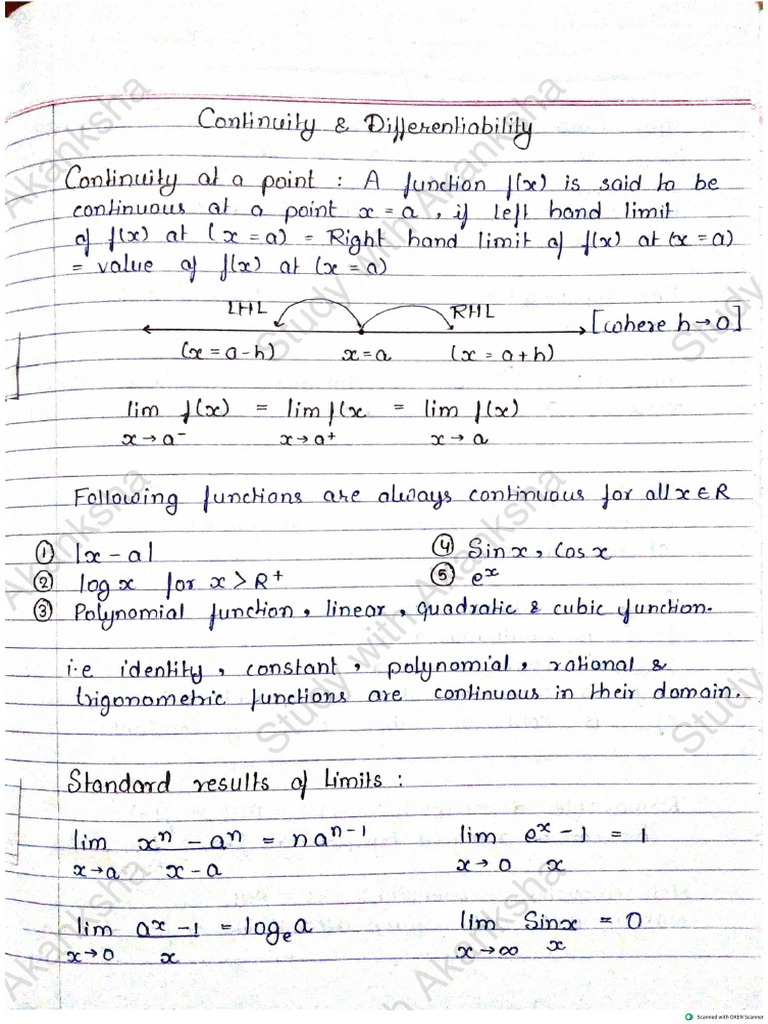 Continuity & Differentiability
Continuity at a point : A function f(x) is said to be
continuous at a point x = a , if left hand limit
of f(x) at (x = a) = Right hand limit of f(x) at (x = a)
= value of f(x) at (x = a)
LHL RHL
[where h → 0]
(x = a - h) x = a (x = a + h)
lim f(x) = lim f(x = lim f(x)
x → a⁻ x → a⁺ x → a
Following functions are always continuous for all x ∈ R
① |x - a| ④ Sin x , Cos x
② log x for x > R⁺ ⑤ eˣ
③ Polynomial function , linear , quadratic & cubic function.
i.e identity , constant , polynomial , rational &
trigonometric functions are continuous in their domain.
Standard results of Limits :
lim xⁿ - aⁿ = naⁿ⁻¹ lim eˣ - 1 = 1
x → a x - a x → 0 x
lim aˣ - 1 = logₑa lim Sinx = 0
x → 0 x x → ∞ x
Study with Akanksha
Scanned with OKEN Scanner